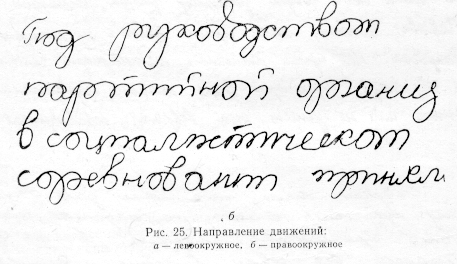 Под руководством
партийной организ
в социалистическом
соревновании принял
б
Рис. 25. Направление движений:
а — левоокружное, б — правоокружное